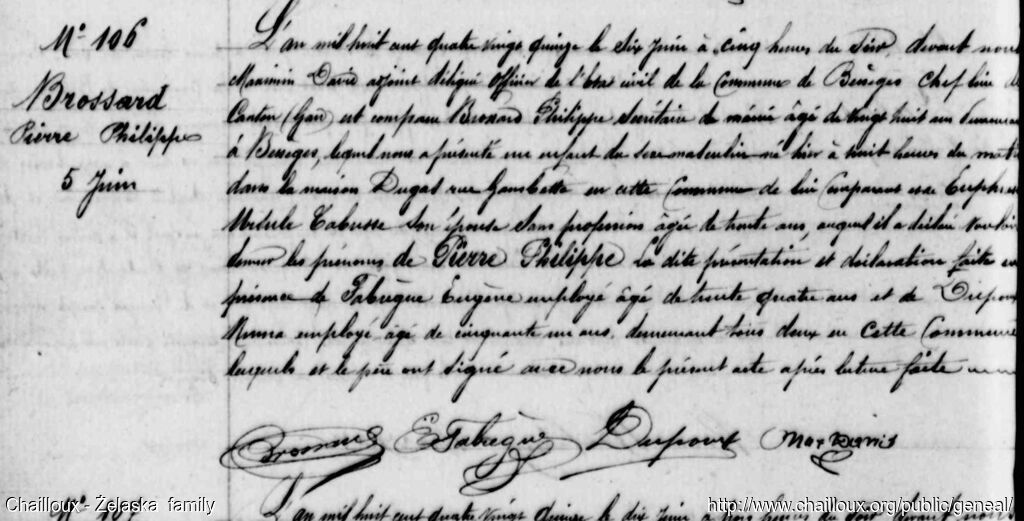 N° 106
Brossard
Pierre Philippe
5 Juin
L'an mil huit cent quatre vingt quinze le six Juin à cinq heures du soir, devant nous
Maximin David adjoint délégué officier de l'état civil de la Commune de Bessèges Chef lieu de
Canton (Gard) est comparu Brossard Philippe Secrétaire de mairie âgé de vingt huit ans
à Bessèges, lequel nous a présenté un enfant du sexe masculin né hier à huit heures du matin
dans la maison Dugas rue Gambetta en cette Commune de lui Comparant et de
son épouse sans profession âgée de trente ans, auquel il a déclaré vouloir
donner les prénoms de Pierre Philippe La dite présentation et déclaration faite en
présence de Fabrègue Eugène employé âgé de trente quatre ans et de Dupoux
Numa employé âgé de cinquante un ans, demeurant tous deux en cette Commune
lesquels et le père ont signé avec nous le présent acte après lecture faite
Brossard E Fabrègue Dupoux Max David
N° 107
L'an mil huit cent quatre vingt quinze le dix Juin à
Chailloux - Żelaska family
http://www.chailloux.org/public/geneal/